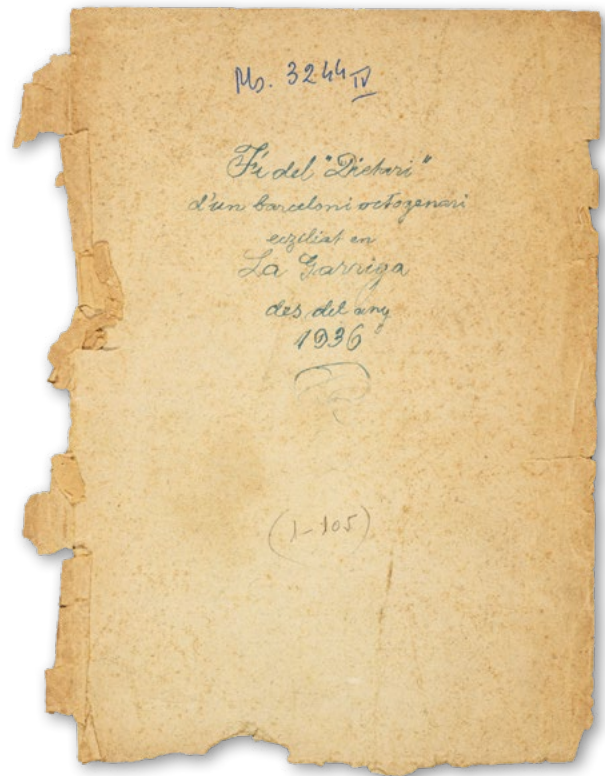 Ms. 3244 IV
Fi del "Dietari"
d'un barceloni octogenari
exziliat en
La Garriga
des del any
1936
(1-105)